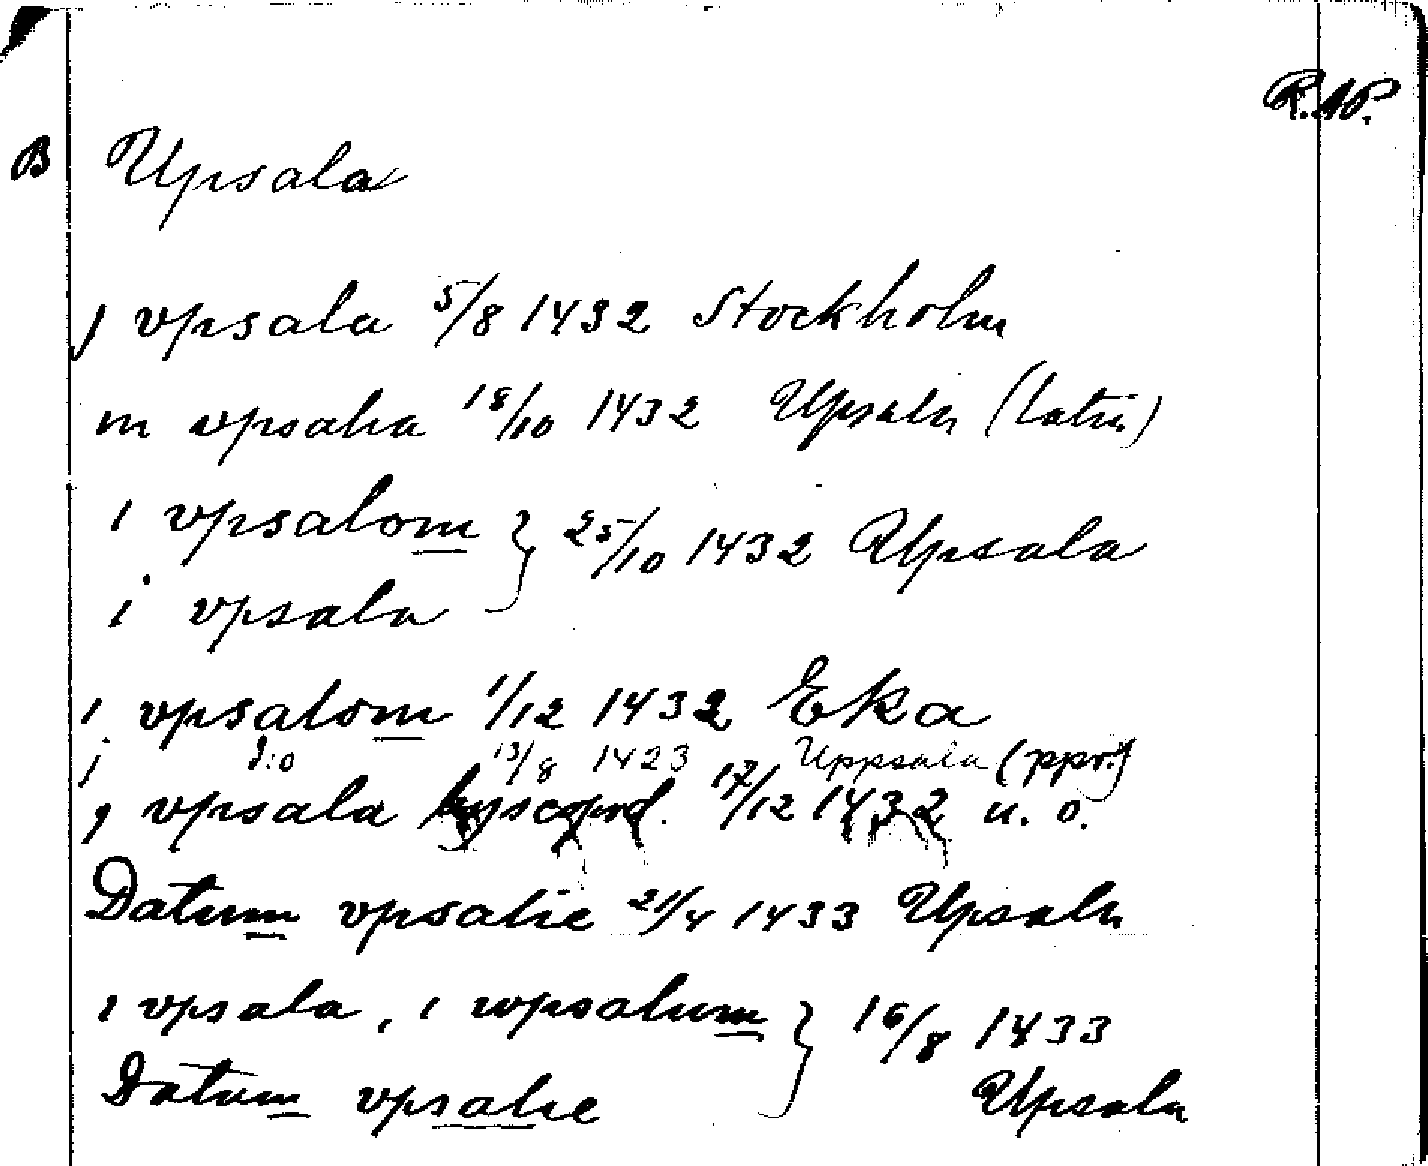 R.A.P.
B Upsala
j vpsala 5/8 1432 Stockholm
in vpsalia 18/10 1432 Upsala (latin)
i vpsalom } 25/10 1432 Upsala
i vpsala
i vpsalom 1/12 1432 Eka
j d:o 13/8 1423 Uppsala (ppr.)
j vpsala 17/12 1432 u. o.
Datum vpsalie 21/4 1433 Upsala
i vpsala, i wpsalum } 16/8 1433
Datum vpsalie Upsala